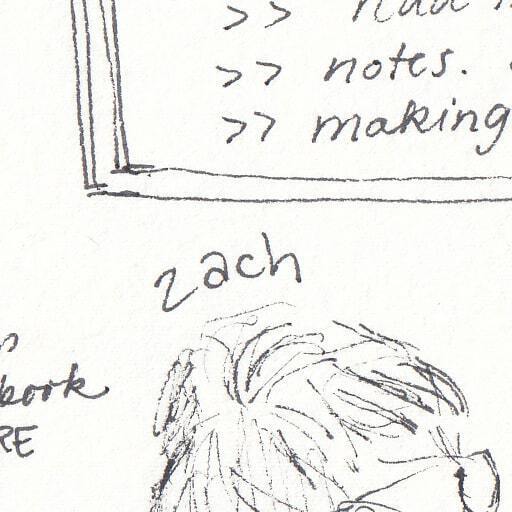 >> had
>> notes.
>> making
zach
book
RE